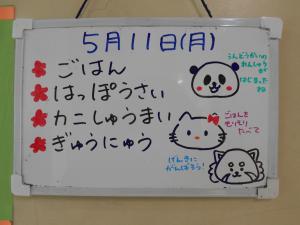 5月11日(月)
ごはん
はっぽうさい
カニしゅうまい
ぎゅうにゅう
うんどうかいの
れんしゅう
が
はじまった
ね
ごはんを
モリモリ
たべて
げんきに
がんばろう!